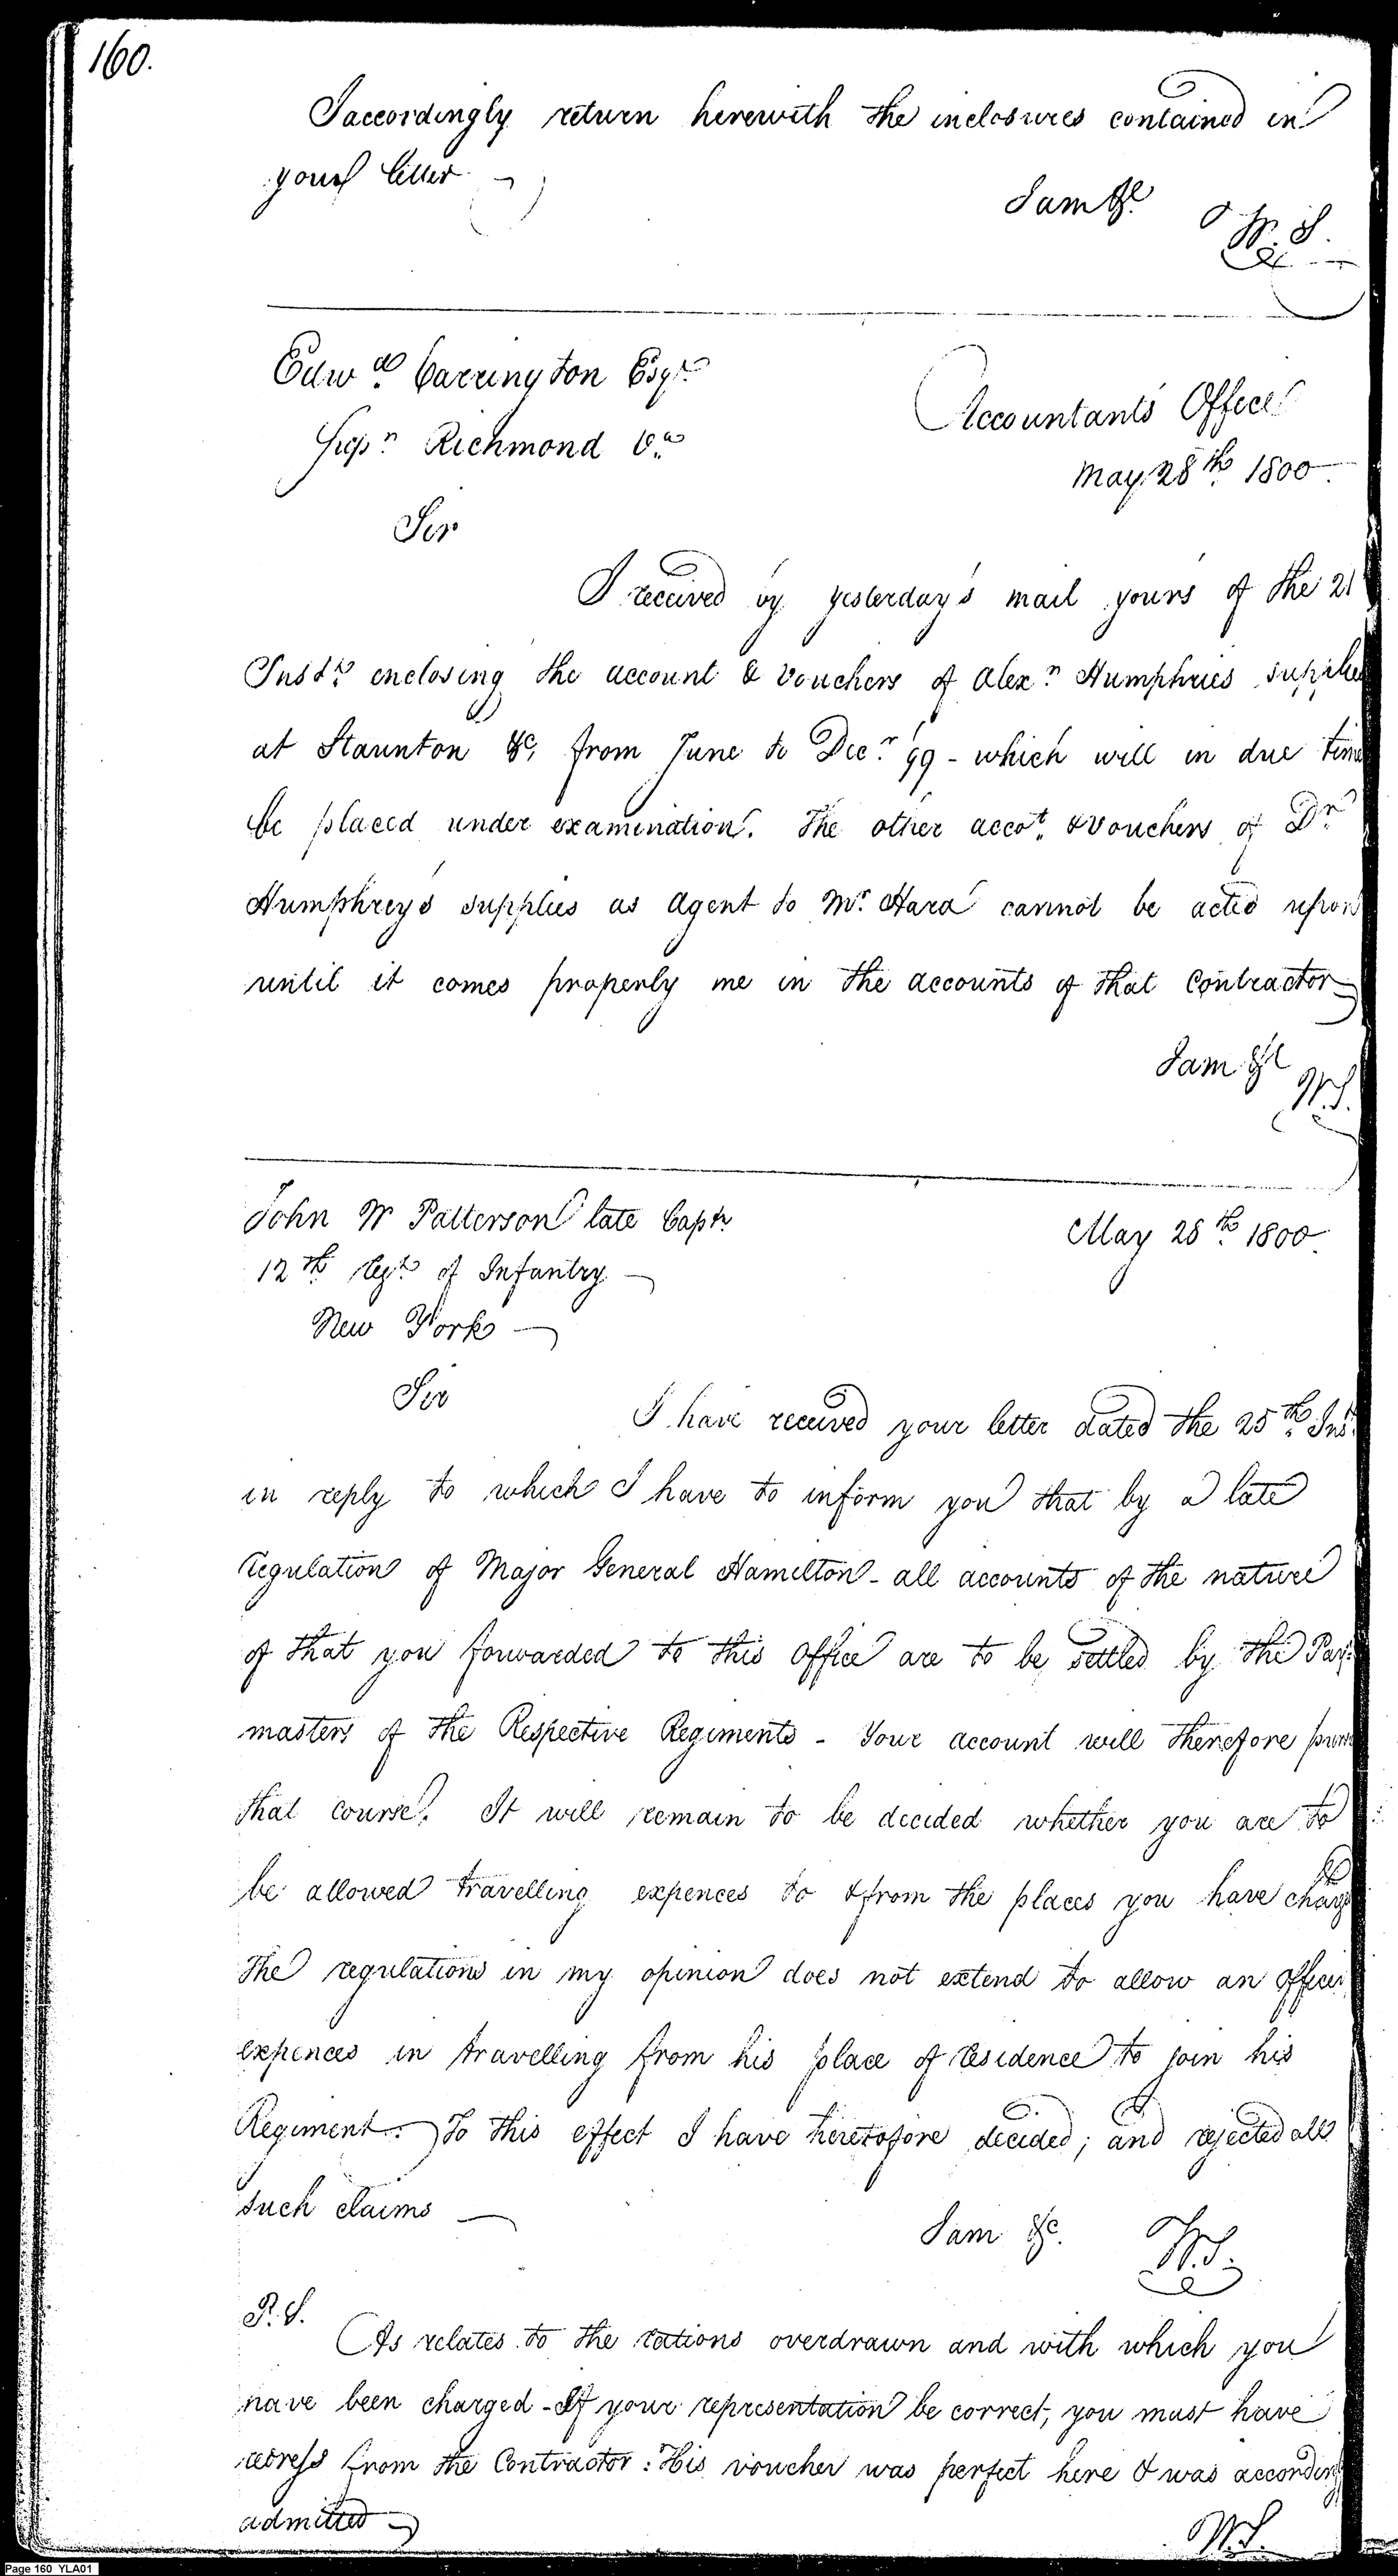 160.
I accordingly return herewith the inclosures contained in
your letter
I am &c
W. S.
Edwd. Carrington Esqr.
Supr. Richmond Va.
Accountants Office
May 28th. 1800.
Sir
I received by yesterday's mail yours of the 21
Inst. enclosing the account & vouchers of Alexr. Humphries supplies
at Staunton &c, from June to Decr. 99 - which will in due time
be placed under examination. The other accot. & vouchers of Dr.
Humphrey's supplies as Agent to Mr. Hara cannot be acted upon
until it comes properly me in the accounts of that Contractor
I am &c
W.S.
John W Patterson late Captn.
12th. Regt. of Infantry
New York
May 28th. 1800.
Sir
I have received your letter dated the 25th. Inst.
in reply to which I have to inform you that by a late
regulation of Major General Hamilton - all accounts of the nature
of that you forwarded to this office are to be settled by the Pay
masters of the Respective Regiments - Your account will therefore
that course. It will remain to be decided whether you are to
be allowed travelling expences to & from the places you have charged
The regulations in my opinion does not extend to allow an officer
expences in travelling from his place of residence to join his
Regiment. To this effect I have heretofore decided; and rejected all
such claims
I am &c.
W.S.
P.S.
As relates to the rations overdrawn and with which you
have been charged - If your representation be correct, you must have
redress from the Contractor: His voucher was perfect here & was according
admitted
W.S.
Page 160 YLA01